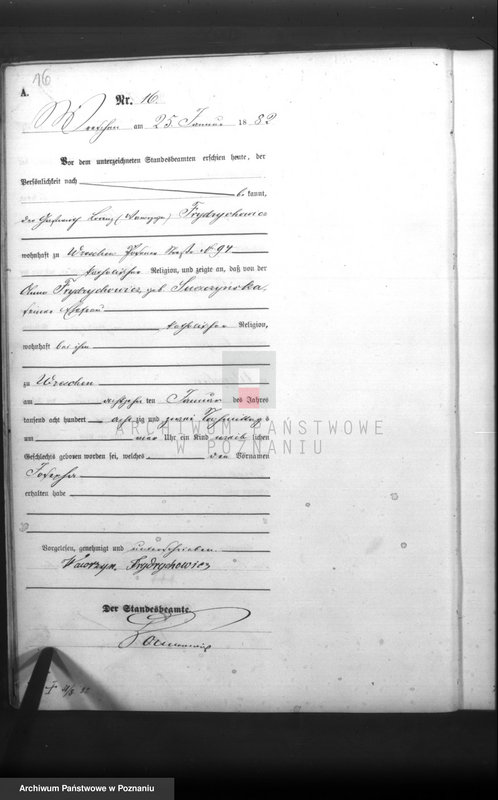 16
A.
Nr. 16.
Wreschen am 25 Januar 1882
Vor dem unterzeichneten Standesbeamten erschien heute, der
Persönlichkeit nach
be kannt,
der Lorenz (Wawrzyn) Frydrychowicz
wohnhaft zu Wreschen Posener Straße No 94
katholischer Religion, und zeigte an, daß von der
Frydrychowicz geb.
seiner Ehefrau
katholischer Religion,
wohnhaft bei ihm
zu Wreschen
am achtzehn ten Januar des Jahres
tausend acht hundert acht zig und zwei Nachmittags
um vier Uhr ein Kind weib lichen
Geschlechts geboren worden sei, welches den Vornamen
Josepha
erhalten habe
Vorgelesen, genehmigt und unterschrieben
Wawrzyn Frydrychowicz
Der Standesbeamte.
ARCHIWUM PAŃSTWOWE
W POZNANIU
Archiwum Państwowe w Poznaniu